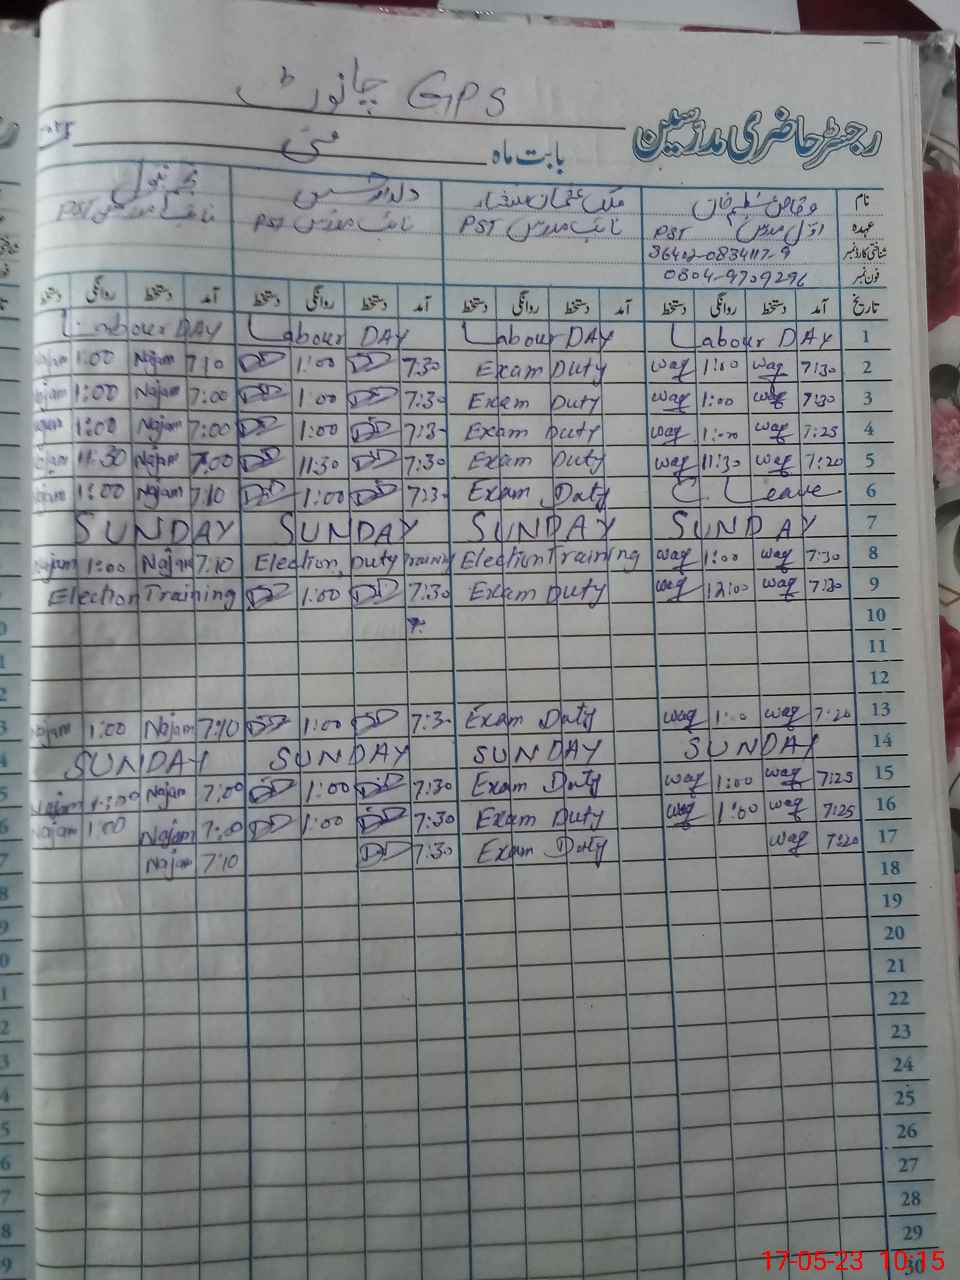 GPS چانورٹ
رجسٹر حاضری مدرسین
بابت ماہ مئی
نام وقاص عظیم خان
عہدہ اول مدرس PST نائب مدرس PST نائب مدرس PST نائب مدرس PST
شناختی کارڈ نمبر 36402-0834117-9
فون نمبر 0304-9709296
تاریخ آمد دستخط روانگی دستخط آمد دستخط روانگی دستخط آمد دستخط روانگی دستخط آمد دستخط روانگی دستخط
Labour DAY Labour DAY Labour DAY Labour DAY 1
Najam 1:00 Najam 7:10 DD 1:00 DD 7:30 Exam Duty waq 1:00 waq 7:30 2
Najam 1:00 Najam 7:00 DD 1:00 DD 7:30 Exam Duty waq 1:00 waq 7:30 3
Najam 1:00 Najam 7:00 DD 1:00 DD 7:3- Exam Duty waq 1:00 waq 7:25 4
Najam 11:30 Najam 7:00 DD 11:30 DD 7:30 Exam Duty waq 11:30 waq 7:20 5
Najam 1:00 Najam 7:10 DD 1:00 DD 7:3- Exam Duty C. Leave 6
SUNDAY SUNDAY SUNDAY SUNDAY 7
Najam 1:00 Najam 7:10 Election Duty Training Election Training waq 1:00 waq 7:30 8
Election Training DD 1:00 DD 7:30 Exam Duty waq 12:00 waq 7:30 9
10
11
12
Najam 1:00 Najam 7:10 DD 1:00 DD 7:3- Exam Duty waq 1:-0 waq 7:20 13
SUNDAY SUNDAY SUNDAY SUNDAY 14
Najam 1:00 Najam 7:00 DD 1:00 DD 7:30 Exam Duty waq 1:00 waq 7:25 15
Najam 1:00 Najam 7:00 DD 1:00 DD 7:30 Exam Duty waq 1:00 waq 7:25 16
Najam 7:10 DD 7:30 Exam Duty waq 7:20 17
18
19
20
21
22
23
24
25
26
27
28
29
30
17-05-23 10:15